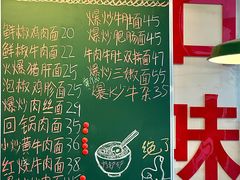 鲜椒鸡肉面20
鲜椒牛肉面22
火爆猪肝面25
泡椒鸡胗面25
爆炒肉丝面29
回锅肉面35
小炒黄牛肉面36
红烧牛肉面38
爆炒牛肚面45
爆炒肥肠面45
牛肉牛肚双拼面47
爆炒三嫩面55
爆炒牛杂35
绝了
口味